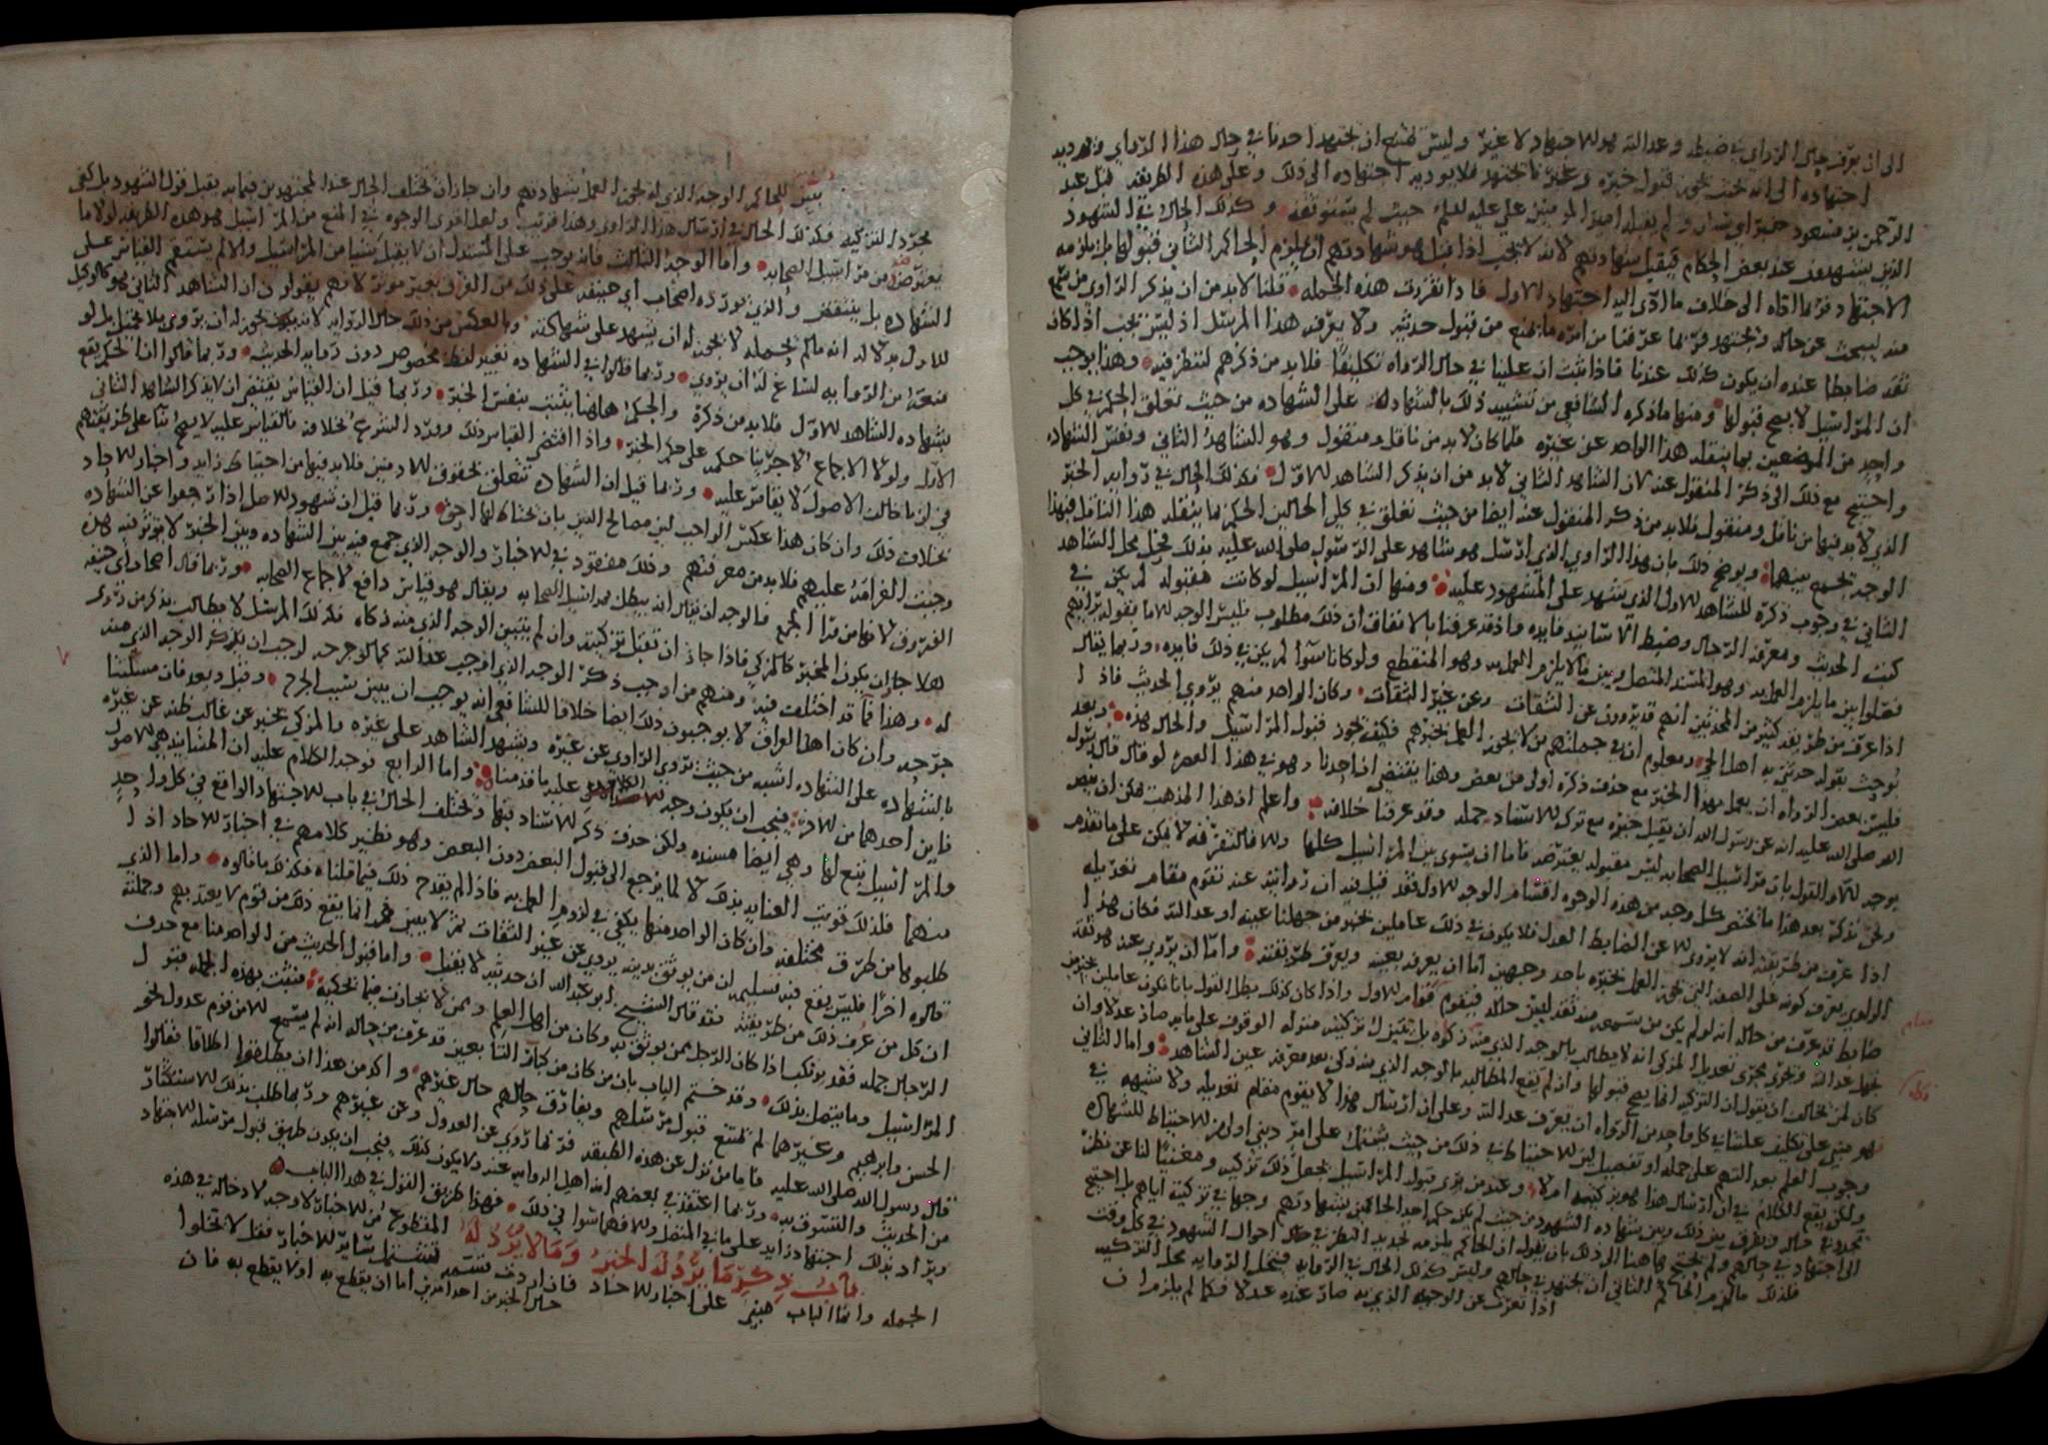 الى ان يعرف حال الراوي في ضبطه وعدالته هو للاجتهاد لا غير وليس يمتنع ان يجتهد احدنا في حال هذا الراوي فيوديه
اجتهاده الى انه ممن يجوز قبول خبره وغيرنا يجتهد فلا يوديه اجتهاده الى ذلك وعلى هذه الطريقه قبل عبد
الرحمن بن مسعود خبر
الذين يستشهدون عند بعض الحكام فيقبل شهادتهم لانه لا يجب اذا قبل هو شهادتهم ان يلزم الحاكم الثاني قبولها بل يلزمه
الاجتهاد فربما اداه الى خلاف ما ادى اليه اجتهاد الاول فاذا تقررت هذه الجمله قلنا لا بد من ان يذكر الراوي من سمع
منه ليبحث عن حاله ويجتهد فربما عرفنا من امره ما يمنع من قبول حديثه ولا يعرفه هذا المرسل اذ ليس يجب اذا كان
ثقه ضابطا عنده ان يكون كذلك عندنا فاذا ثبت ان علينا في حال الرواه تكليفا فلا بد من ذكرهم لننظر فيه وهذا يوجب
ان المراسيل لا يصح قبولها ومنها ما ذكره الشافعي من تشبيه ذلك بالشهاده على الشهاده من حيث تعلق الحكم في كل
واحد من الموضعين بما ينقله هذا الواحد عن غيره فلما كان لا بد من ناقل ومنقول وهو الشاهد الثاني ونفس الشهاده
واحتيج مع ذلك الى ذكر المنقول عنه لان الشاهد الثاني لا بد من ان يذكر الشاهد الاول فكذلك الحال في روايه الخبر
الذي لا بد فيها من ناقل ومنقول فلا بد من ذكر المنقول عنه ايضا من حيث تعلق في كل الحالين الحكم بما ينقله هذا الناقل فهذا
الوجه يجمع بينهما ويوضح ذلك بان هذا الراوي الذي ارسل هو شاهد على الرسول صلى الله عليه بذلك فحل محل الشاهد
الثاني في وجوب ذكره للشاهد الاول الذي يشهد على المشهود عليه ومنها ان المراسيل لو كانت مقبوله لم يكن في
كتب الحديث ومعرفه الرجال وضبط الاسانيد فايده واذ قد عرفنا بالاتفاق ان ذلك مطلوب فليس الوجه الا ما يقوله من انهم
فصلوا بين ما يلزم العمل به وهو المسند المتصل وبين ما لا يلزم العمل به وهو المنقطع ولو كانا سوا لم يكن في ذلك فايده وربما يقال
اذا عرف من طريقه كثير من المحدثين انهم قد يروون عن الثقات وعن غير الثقات وكان الواحد منهم يروي الحديث فاذا
بوحث يقول حدثني به اهل الحي ومعلوم ان في جملتهم من لا يجوز العمل بخبرهم فكيف يجوز قبول المراسيل والحال هذه وبعد
فليس بعض الرواه ان يعمل بهذا الخبر مع حذف ذكره اولى من بعض وهذا يقتضي ان احدنا وهو في هذا العصر لو قال قال رسول
الله صلى الله عليه انه عن رسول الله ان يقبل خبره مع تركه للاسناد جمله وقد عرفنا خلافه واعلم ان هذا المذهب يمكن ان ينصر
يوجه للاول القول بان مراسيل الصحابه ليس مقبوله يعترضه فاما ان يسوى بين المراسيل كلها والا فالتفرقه لا يمكن على ما تقدم
ونحن نذكر بعد هذا ما يختص كل وجه من هذه الوجوه اقسام الوجه الاول فقد قيل فيه ان روايته عنه تقوم مقام تعديله
اذا عرف من طريقته انه لا يروي الا عن الضابط العدل فلا يكون في ذلك عاملين بخبر من جهلنا عينه او عدالته فكان هذا
الراوي يعرف كونه على الصفه التي يجوز العمل بخبره باحد وجهين اما ان يعرفه بعينه ويعرف طريقته واما ان يروي عنه من هو ثقه
ضابط قد عرف من حاله انه لو لم يكن من يسمعه منه ثقه لبين حاله فيقوم مقام الاول واذا كان كذلك بطل القول بانا نكون عاملين بخبر من
نجهل عدالته ويجري مجرى تعديل المزكي انه لا يطالب بالوجه الذي منه زكاه بل تنزل تزكيته منزله الوقوف على ما به صار عدلا وان
كان لمن يخالف ان يقول ان التزكيه انما يصح قبولها وان لم يقع المطالبه بالوجه الذي منه زكي بعد معرفه عين الشاهد واما الثاني
فهو مبني على تكليف علينا في كل واحد من الرواه ان يعرف عدالته وعلى ان ارسال هذا لا يقوم مقام تعديله ولا شبهه في
وجوب العلم بعدالتهم على جمله او تفصيل لان الاحتياط في ذلك من حيث يشتمل على امر ديني اولى من الاحتياط للشهاده
ولكن يقع الكلام في ان ارسال هذا هو تزكيه ام لا وعند من يرى قبول المراسيل يجعل ذلك تزكيه ومغنيا لنا عن نظر
نجدده في حاله ويفرق بين ذلك وبين شهاده الشهود من حيث لم يكن حكم احد الحاكمين بشهادتهم وجها في تزكيته اياهم بل احتيج
الى اجتهاد في حالهم ولم يحتج هاهنا الى ذلك بان يقول ان الحاكم يلزمه تجديد النظر في حال احوال الشهود في كل وقت
فلذلك ما لزم الحاكم الثاني ان يجتهد في حالهم وليس كذلك الحال في الروايه فيحل الروايه محل التزكيه
اذا تعرت عن الوجه الذي به صار عنده عدلا فكما لم يلزم ان
مقام
يبين للحاكم الوجه الذي له يجوز العمل بشهادتهم وان جاز ان يختلف الحال عند المجتهدين فيما به يقبل قول الشهود بل كفى
مجرد التزكيه فكذلك الحال في ارسال هذا الراوي وهذا قريب ولعل اقوى الوجوه في المنع من المراسيل هو هذه الطريقه لولا ما
يعترضه من مراسيل الصحابه واما الوجه الثالث فانه يوجب على المستدل ان لا يقبل شيئا من المراسيل والا لم يستقم القياس على
الشهاده بل ينتقض والذي يورده اصحاب ابي حنيفه على ذلك من الفرق بغير موثر لانهم يقولون ان الشاهد الثاني هو كالوكيل
للاول بدلاله انه ما لم يحمله لا يجوز له ان يشهد على شهادته وبالعكس من ذلك حال الروايه لانه يجوز له ان يروي بلا تحمل بل لو
منعه من الروايه لساغ له ان يروي وربما قالوا في الشهاده تعتبر لفظه مخصوص دون روايه الحديث وربما قالوا ان الحكم يقع
بشهاده الشاهد الاول فلا بد من ذكره والحكم هاهنا يثبت بنفس الخبر وربما قيل ان القياس يقتضي ان لا يذكر الشاهد الثاني
الاول ولولا الاجماع لاجرينا حكمه على حكم الخبر واذا اقتضى القياس ذلك وورد الشرع بخلافه فالقياس عليه لا يصح بنا على طريقتهم
في ان ما خالف الاصول لا يقاس عليه وربما قيل ان الشهاده تتعلق بحقوق الادميين فلا بد فيها من احتياط زايد واخبار الاحاد
بخلاف ذلك وان كان هذا عكس الواجب لان مصالح الدين بان يحتاط لها احق وربما قيل ان شهود الاصل اذا رجعوا عن الشهاده
وجبت الغرامه عليهم فلا بد من معرفتهم وذلك مفقود في الاخبار والوجه الذي جمع فيه بين الشهاده وبين الخبر لا يوثر فيه هذه
الفروق لانها من ورا الجمع فالوجه ان يقال انه يبطل بمراسيل الصحابه ويقال هو قياس دافع لاجماع الصحابه وربما قال اصحاب ابي حنيفه
هلا جاز ان يكون المخبر كالمزكي فاذا جاز ان تقبل تزكيته وان لم يتبين الوجه الذي منه زكاه فكذلك المرسل لا يطالب بذكر من روى
له وهذا مما قد اختلف فيه ومنهم من اوجب ذكر الوجه الذي اوجب عدالته كما لو جرحه لوجب ان يذكر الوجه الذي منه
جرحه وان كان اهل العراق لا يوجبون ذلك ايضا خلافا للشافعي انه يوجب ان يبين سبب الجرح وقيل وبعد فان مسئلتنا
بالشهاده على الشهاده اشبه من حيث يروي الراوي عن غيره ويشهد الشاهد على غيره والمزكي يخبر عن غالب ظنه عن غيره
فاين احدهما من الاخر فيجب ان يكون وجه الكلام عليه ما قدمناه واما الرابع فوجه الكلام عليه ان المسانيد هي الاصول
والمراسيل تبع لها وهي ايضا مسنده ولكن حذف ذكر الاسناد فيها ويختلف الحال في باب الاجتهاد الواقع في كل واحد
منهما فلذلك قويت العنايه بذلك لا لما يرجع الى قبول البعض دون البعض وهو نظير كلامهم في اخبار الاحاد اذا
طلبوها من طرق مختلفه وان كان الواحد منها يكفي في لزوم العمل به فاذا لم يقدح ذلك فيما قلناه فكذلك ما قالوه واما الذي
قالوه اخرا فليس يقع فيه تسليم ان من يوثق بدينه يروي عن غير الثقات ثم لا يبين فهو انما يقع ذلك من قوم لا يعتد بهم وجملته
ان كل من عرف ذلك من طريقته فقد قال الشيخ ابو عبد الله ان حديثه لا يقبل واما قبول الحديث من الواحد منا مع حذف
الرجال جمله فقد يرتكب اذا كان الرجل ممن يوثق به وكان من اهل العلم وممن لا يجازف فيما يحكيه فثبتت بهذه الجمله قبول
المراسيل وما يتصل بذلك وقد ختم الباب بان من كان من كبار التابعين قد عرف من حاله انه لم يسمع الا من قوم عدول نحو
الحسن وابرهيم وغيرهما لم يمتنع قبول مرسلهم ويفارق حالهم حال غيرهم واكد من هذا ان يطلقوا اطلاقا فقالوا
قال رسول الله صلى الله عليه فاما من نزل عن هذه الطبقه فربما روي عن العدول وعن غيرهم وربما طلب بذلك الاستكثار
من الحديث والتسوق به وربما اعتقد في بعضهم انه اهل الروايه عنه ولا يكون كذلك فيجب ان يكون طريق قبول مرسله الاجتهاد
ويزاد بذلك اجتهاد زايد على ما في المتصل والا فهما سوا في ذلك فهذا طريق القول في هذا الباب
باب ذكر ما يرد له الخبر وما لا يرد له المقطوع من الاخبار لا وجه لادخاله في هذه
الجمله وانما الباب مبني على اخبار الاحاد فان اردت قسمه تشتمل ساير الاخبار فقل لا تخلوا
حال الخبر من احد امرين اما ان يقطع به او لا يقطع به فان